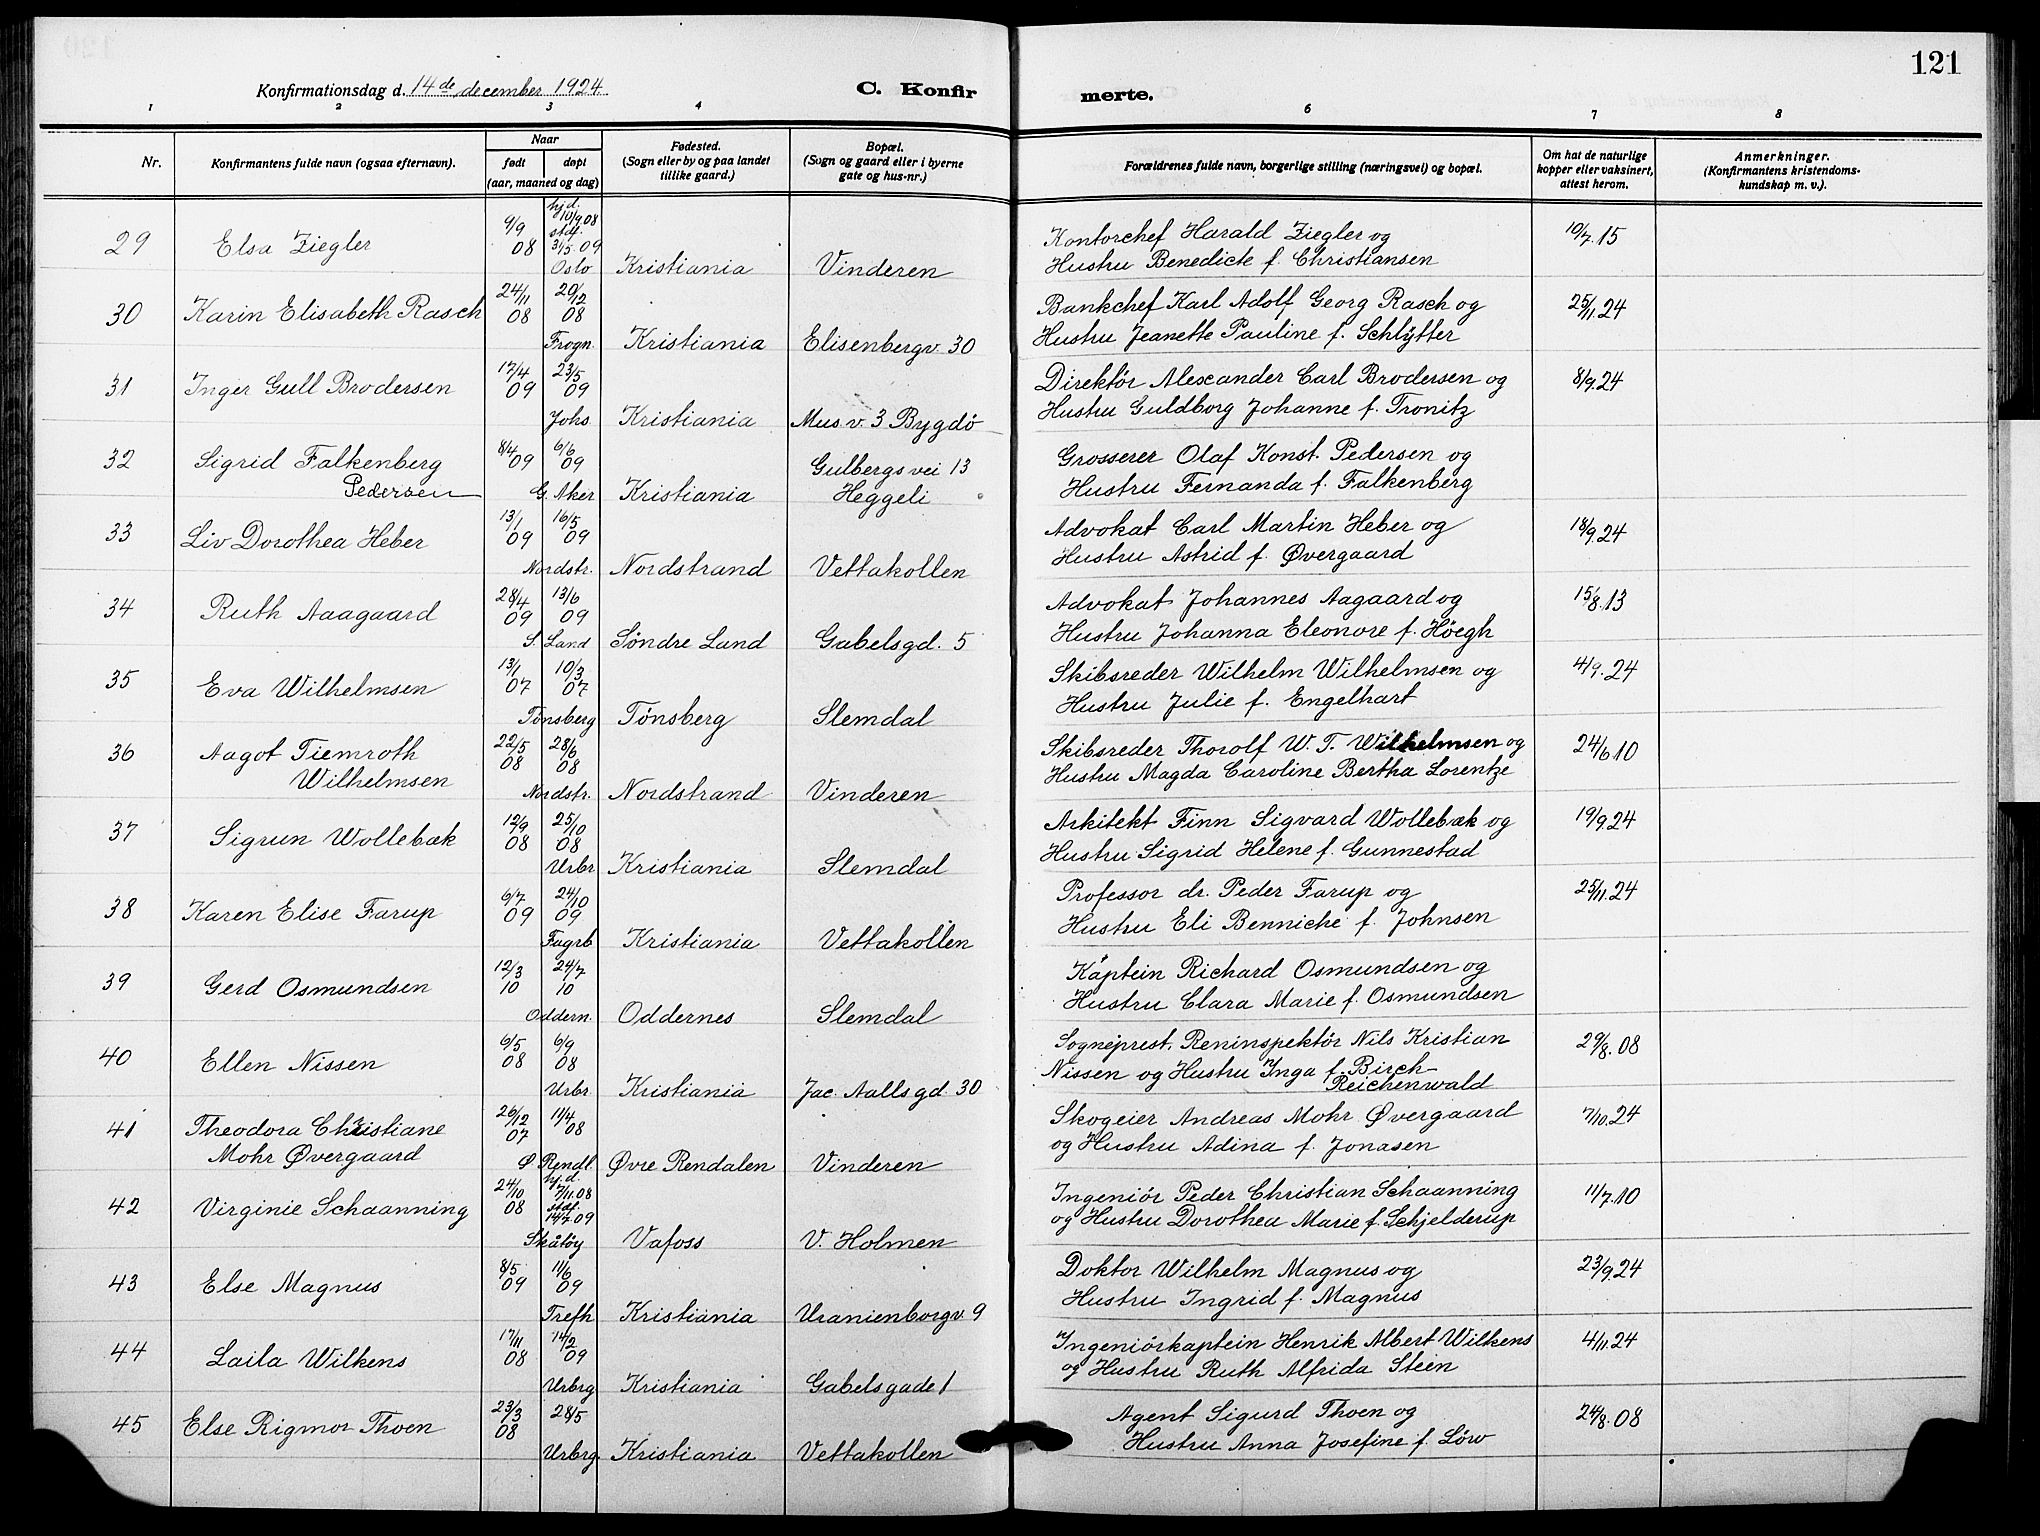 121
Konfirmationsdag d. 14de december 1924.
C. Konfirmerte.
1 2 3 4 6 7 8
Nr.
Konfirmantens fulde navn (ogsaa efternavn).
Naar
født døpt
(aar, maaned og dag)
Fødested.
(Sogn eller by og paa landet
tillike gaard.)
Bopæl.
(Sogn og gaard eller i byerne
gate og hus-nr.)
Forældrenes fulde navn, borgerlige stilling (næringsvei) og bopæl.
Om hat de naturlige
kopper eller vaksinert,
attest herom.
Anmerkninger.
(Konfirmantens kristendoms-
kundskap m. v.).
29 Elsa Ziegler 9/9 08 hjd. 10/9 08 stdf. 31/5 09 Oslo Kristiania Vinderen
Kontorchef Harald Ziegler og 10/7.15
Hustru Benedicte f. Christiansen
30 Karin Elisabeth Rasch 24/11 08 20/12 08 Frogn. Kristiania Elisenbergv. 30
Bankchef Karl Adolf Georg Rasch og 25/11.24
Hustru Jeanette Pauline f. Schlytter
31 Inger Gull Brodersen 17/4 09 23/5 09 Johs. Kristiania Mus. v. 3 Bygdö
Direktör Alexander Carl Brodersen og 8/9.24
Hustru Guldborg Johanne f. Tronitz
32 Sigrid Falkenberg 8/4 09 6/6 09 Gulbergs vei 13
Pedersen G. Aker Kristiania Heggeli
Grosserer Olaf Konst. Pedersen og
Hustru Fernanda f. Falkenberg
33 Liv Dorothea Heber 13/1 09 16/5 09 Nordstr. Nordstrand Vettakollen
Advokat Carl Martin Heber og 18/9.24
Hustru Astrid f. Øvergaard
34 Ruth Aaagaard 28/4 09 13/6 09 S. Land Søndre Land Gabelsgd. 5
Advokat Johannes Aagaard og 15/8.13
Hustru Johanna Eleonore f. Höegh
35 Eva Wilhelmsen 13/1 07 10/3 07 Tönsberg Tönsberg Slemdal
Skibsreder Wilhelm Wilhelmsen og 4/9.24
Hustru Julie f. Engelhart
36 Aagot Tiemroth 22/5 08 28/6 08
Wilhelmsen Nordstr. Nordstrand Vinderen
Skibsreder Thorolf W. T. Wilhelmsen og 24/6.10
Hustru Magda Caroline Bertha Lorentze
37 Sigrun Wollebæk 12/9 08 25/10 08 Urbr Kristiania Slemdal
Arkitekt Finn Sigvard Wollebæk og 19/9.24
Hustru Sigrid Helene f. Gunnestad
38 Karen Elise Farup 6/7 09 24/10 09 Fagrb Kristiania Vettakollen
Professor dr. Peder Farup og 25/11.24
Hustru Eli Bennicke f. Johnsen
39 Gerd Osmundsen 12/3 10 24/7 10 Oddern. Oddernes Slemdal
Kaptein Richard Osmundsen og
Hustru Clara Marie f. Osmundsen
40 Ellen Nissen 6/5 08 6/9 08 Urbr. Kristiania Jac. Aallsgd. 30
Sogneprest, Reninspektör Nils Kristian 29/8.08
Nissen og Hustru Inga f. Birch-
Reichenwald
41 Theodora Christiane 26/12 07 11/4 08
Mohr Øvergaard Ø. Rendl. Øvre Rendalen Vinderen
Skogeier Andreas Mohr Øvergaard 7/10.24
og Hustru Adina f. Jonasen
42 Virginie Schaanning 24/10 08 hj.d. 7/11.08 stdf. 14/7 09 Skåtöy Vafoss V. Holmen
Ingeniör Peder Christian Schaanning 11/7.10
og Hustru Dorothea Marie f. Schjelderup
43 Else Magnus 8/5 09 11/6 09 Trefh Kristiania Uranienborgv. 9
Doktor Wilhelm Magnus og 23/9.24
Hustru Ingrid f. Magnus
44 Laila Wilkens 17/11 08 14/2 09 Urbrg Kristiania Gabelsgade 1
Ingeniörkaptein Henrik Albert Wilkens 4/11.24
og Hustru Ruth Alfrida Steen
45 Else Rigmor Thoen 23/3 08 28/5 Urbrg. Kristiania Vettakollen
Agent Sigurd Thoen og 24/8.08
Hustru Anna Josefine f. Löw